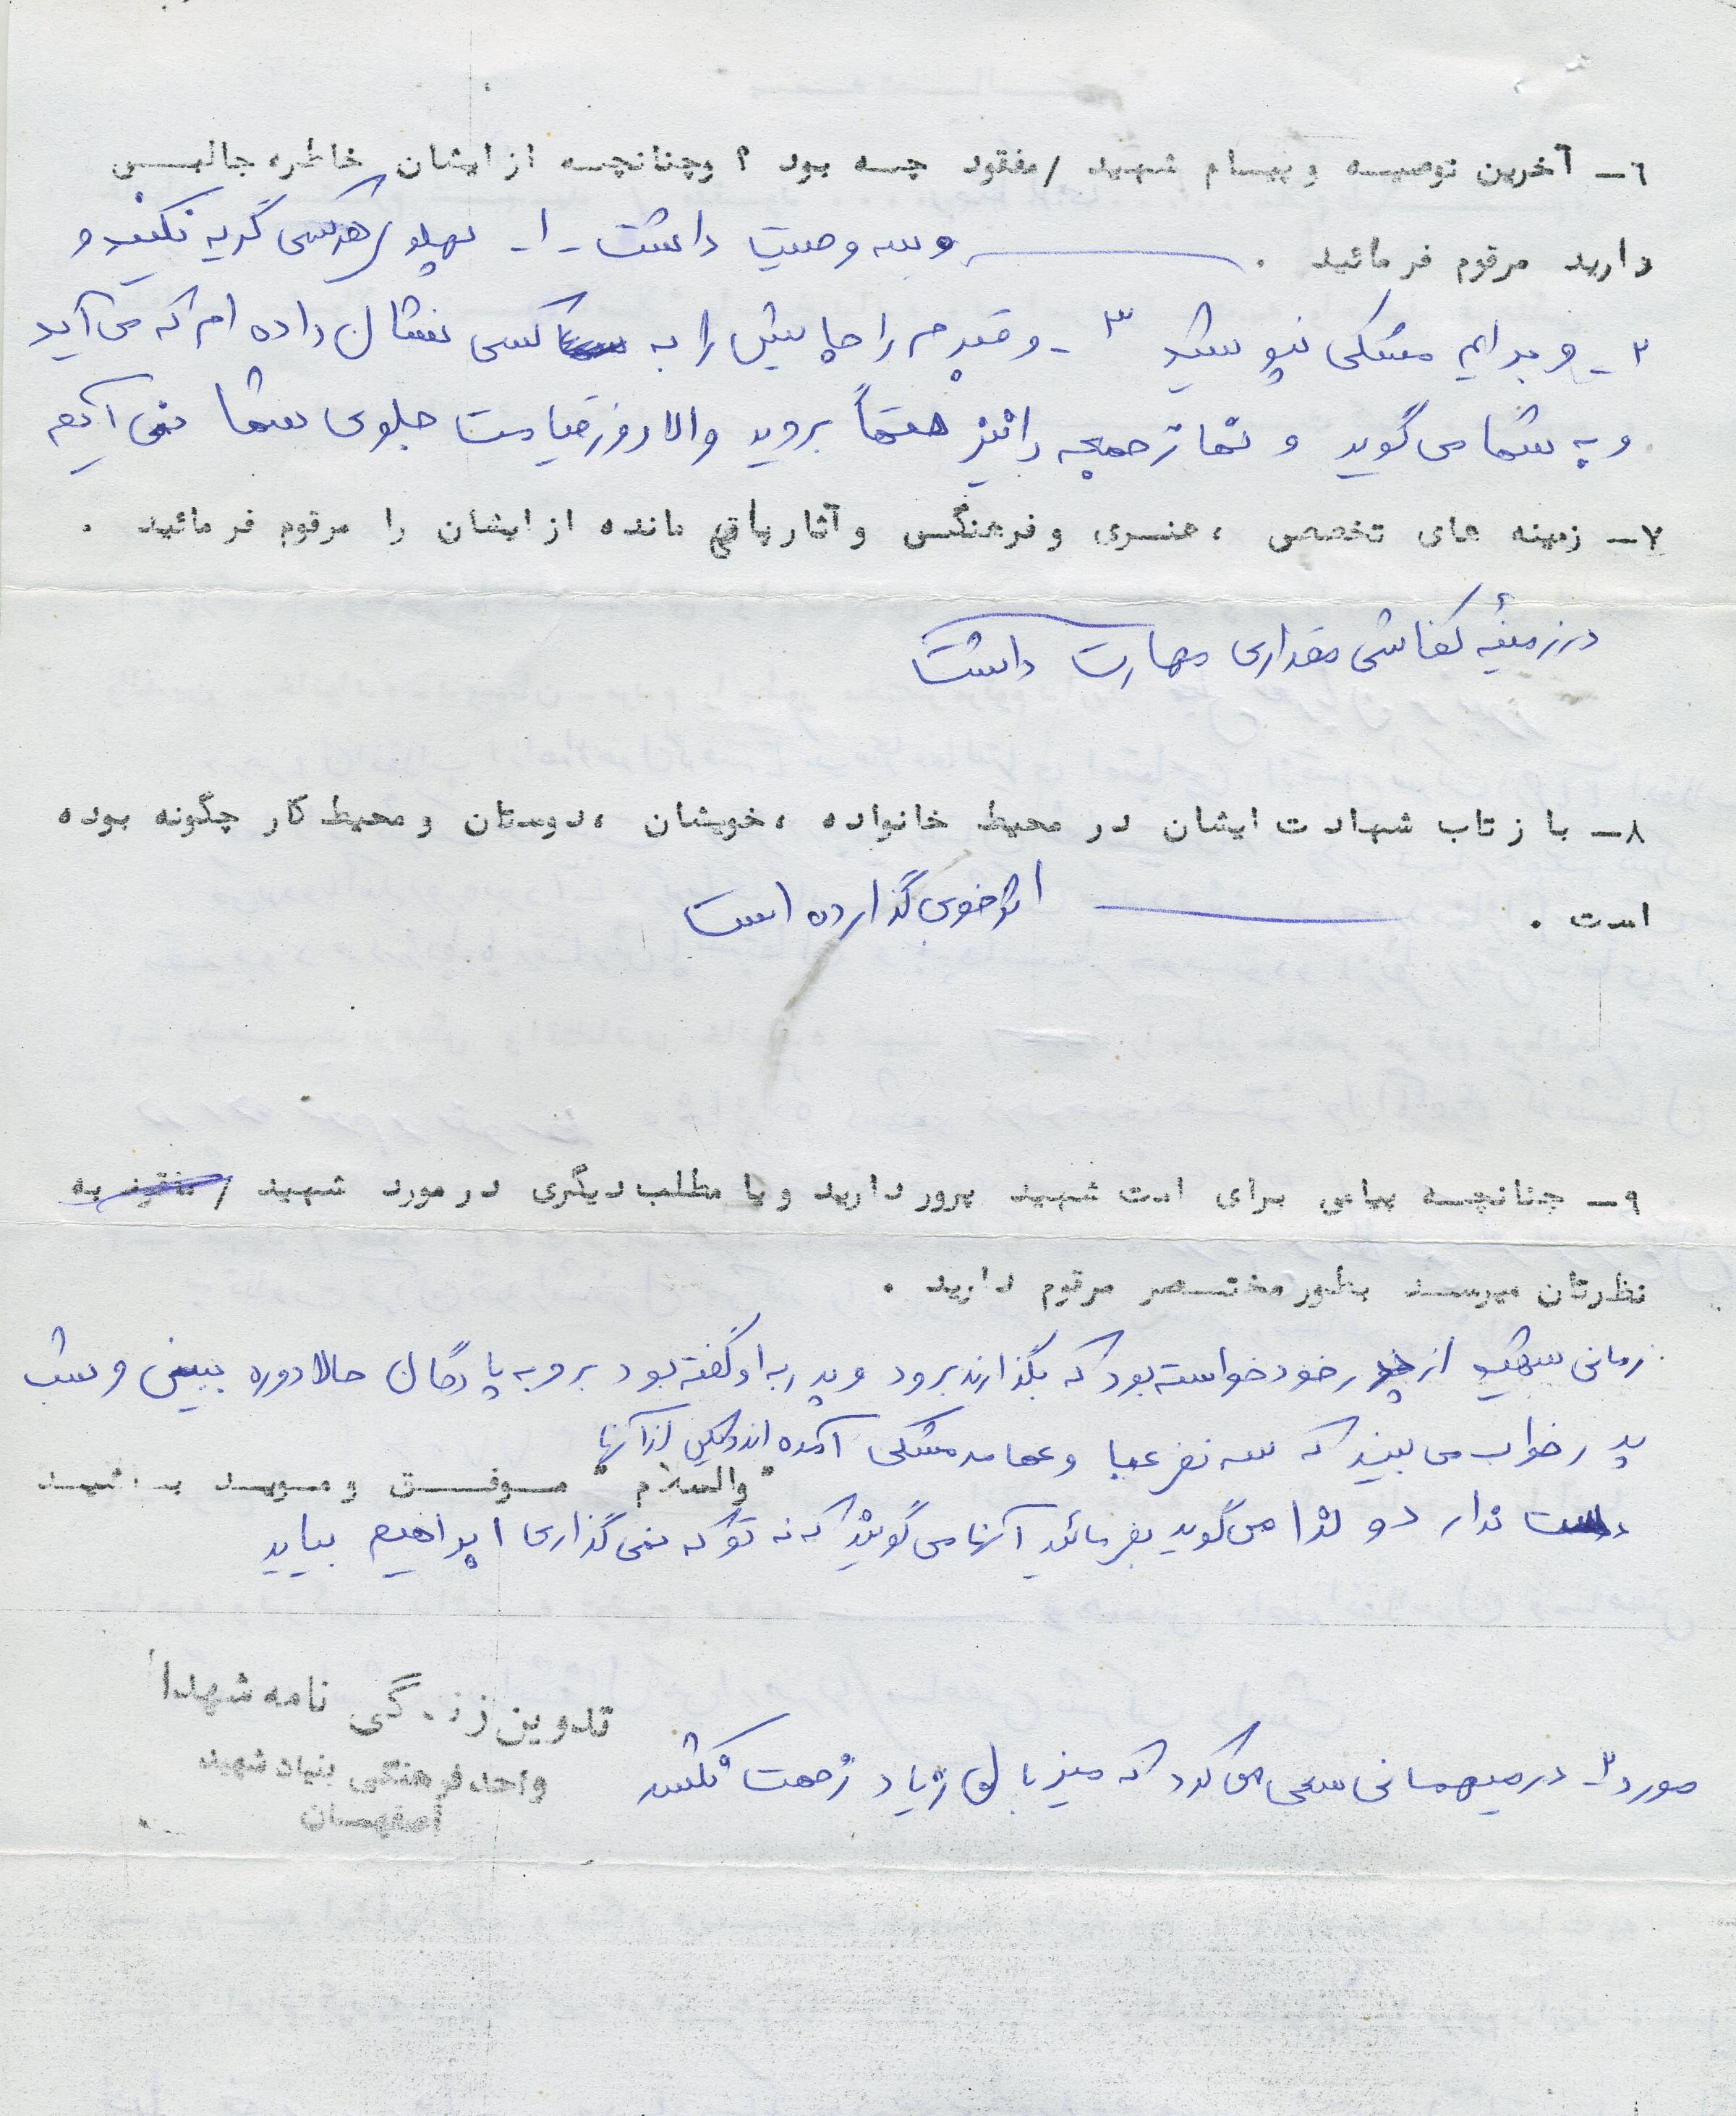 ۶ــ آخرین توصیه و پیام شهید /مفقود چه بود ؟ وچنانچه از ایشان خاطره جالبی
دارید مرقوم فرمائید . وسه وصیت داشت ـ ۱ـ پهلوی هرکسی گریه نکنید و
۲ـ و برایم مشکی نپوشید ۳ـ و قبرم را جایش را به کسی نشان داده ام که می آید
و به شما می گوید و نماز جمعه را نیز حتماً بروید والا روز قیامت جلوی شما نمی آیم
۷ــ زمینه های تخصص ، هنری و فرهنگی و آثار باقی مانده از ایشان را مرقوم فرمائید .
در زمینهٔ کفاشی مقداری مهارت داشت
۸ــ بازتاب شهادت ایشان در محیط خانواده ، خویشان ، دوستان و محیط کار چگونه بوده
است . اثر خوبی گذارده است
۹ــ چنانچه پیامی برای امت شهید پرور دارید و یا مطلب دیگری در مورد شهید / مفقود به
نظرتان میرسد بطور مختصر مرقوم دارید .
زمانی شهید از پدر خود خواسته بود که بگذارند برود و پدر به او گفته بود برو به پادگان حالا دوره ببین و شب
پدر خواب می بیند که سه نفر عبا و عمامه مشکی آمده اند ویکی از آنها
" والسلام " موفق و موید باشید
دست ندارد و لذا می گوید بفرمائید آنها می گویند که نه تو که نمی گذاری ابراهیم بیاید
تدوین زندگی نامه شهدا
واحد فرهنگی بنیاد شهید
اصفهان
مورد ۲ـ در میهمانی سعی می کرد که میزبان زیاد زحمت نکشد